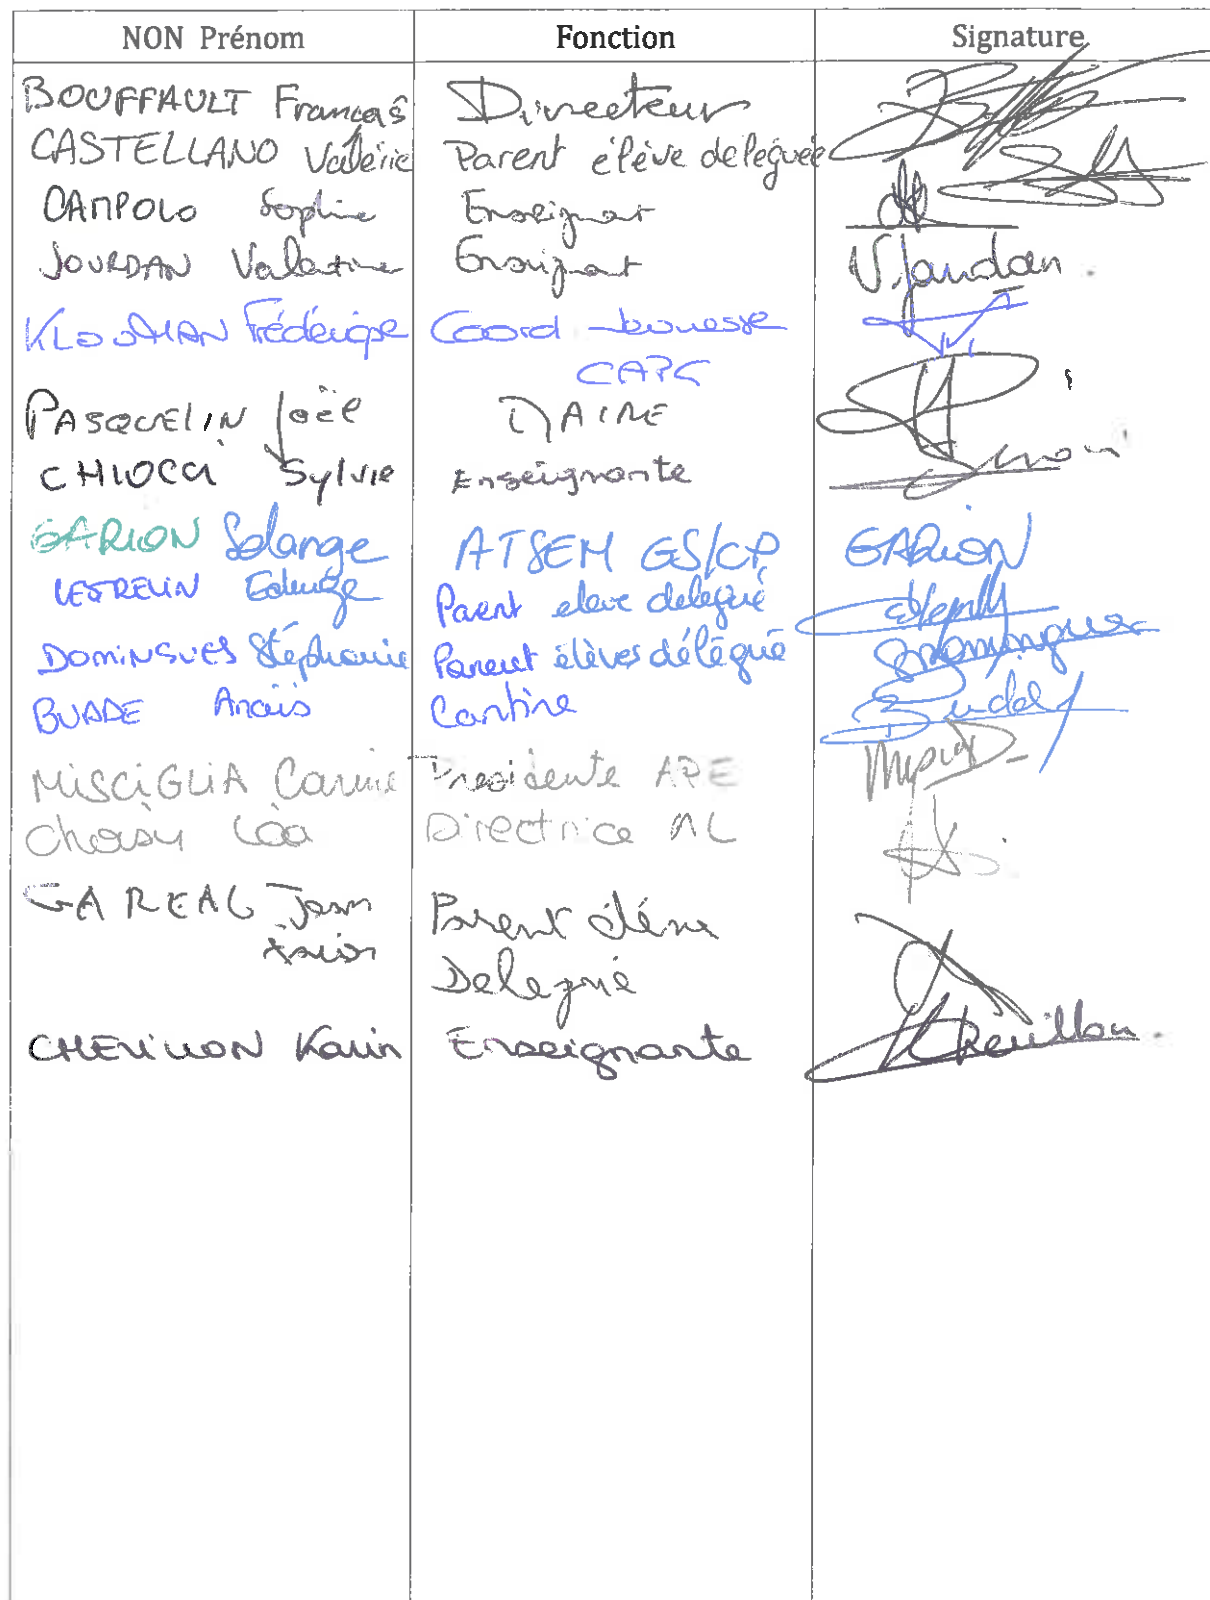 NON Prénom Fonction Signature
BOUFFAULT François Directeur
CASTELLANO Valérie Parent élève deleguée
CAMPOLO Sophie Enseignant
JOURDAN Valentine Enseignant V. Jourdan.
Frédérique Coord Jeunesse
PASQUELIN Joël MAIRE
CHIOCCI Sylvie Enseignante
GARION Solange ATSEM GS/CP GARION
LESTRELIN Edwige Parent eleve delegué
DOMINGUES Stéphanie Parent élèves délégué Domingues
BUDDE Anaïs Cantine
MISCIGLIA Carine Presidente APE
Choisy Léa Directrice AL
GAREAL Jean Parent élève
Delegué
CHEVILLON Karin Enseignante Chevillon.